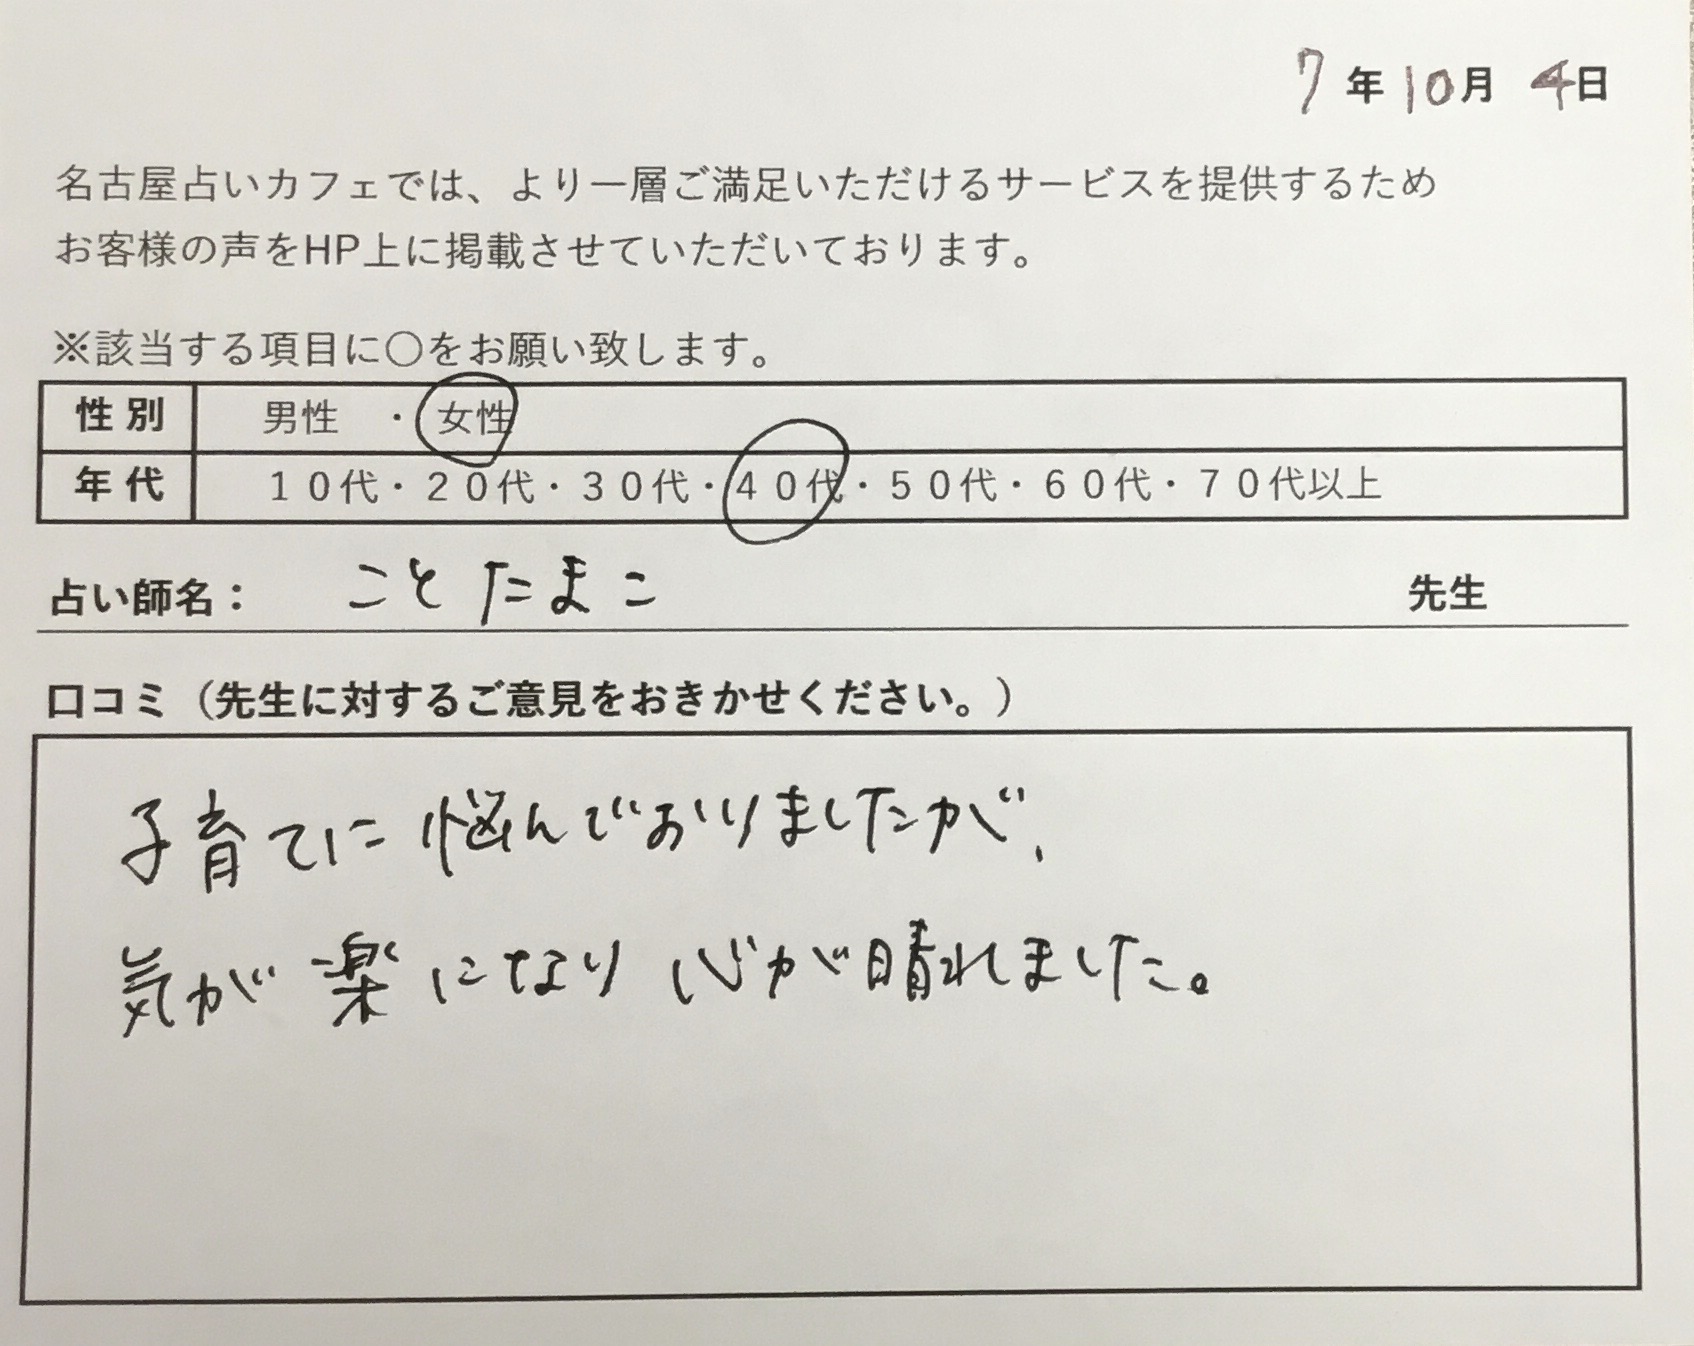 7年10月4日
名古屋占いカフェでは、より一層ご満足いただけるサービスを提供するため
お客様の声をHP上に掲載させていただいております。
※該当する項目に〇をお願い致します。
性別 男性 ・ 女性
年代 10代・20代・30代・40代・50代・60代・70代以上
占い師名： ことたまこ 先生
口コミ（先生に対するご意見をおきかせください。）
子育てに悩んでおりましたが、
気が楽になり心が晴れました。